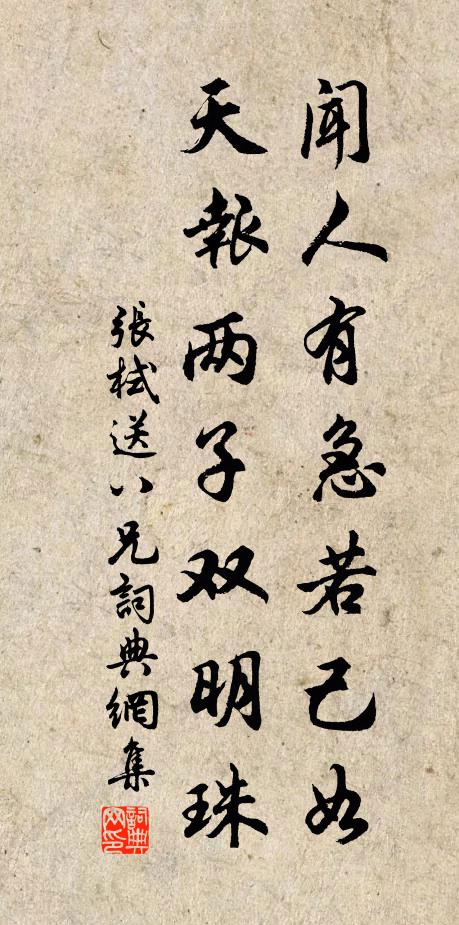 闻人有急若己如
天報两子双明珠
張栻送八兄詞典網集
詞典网印